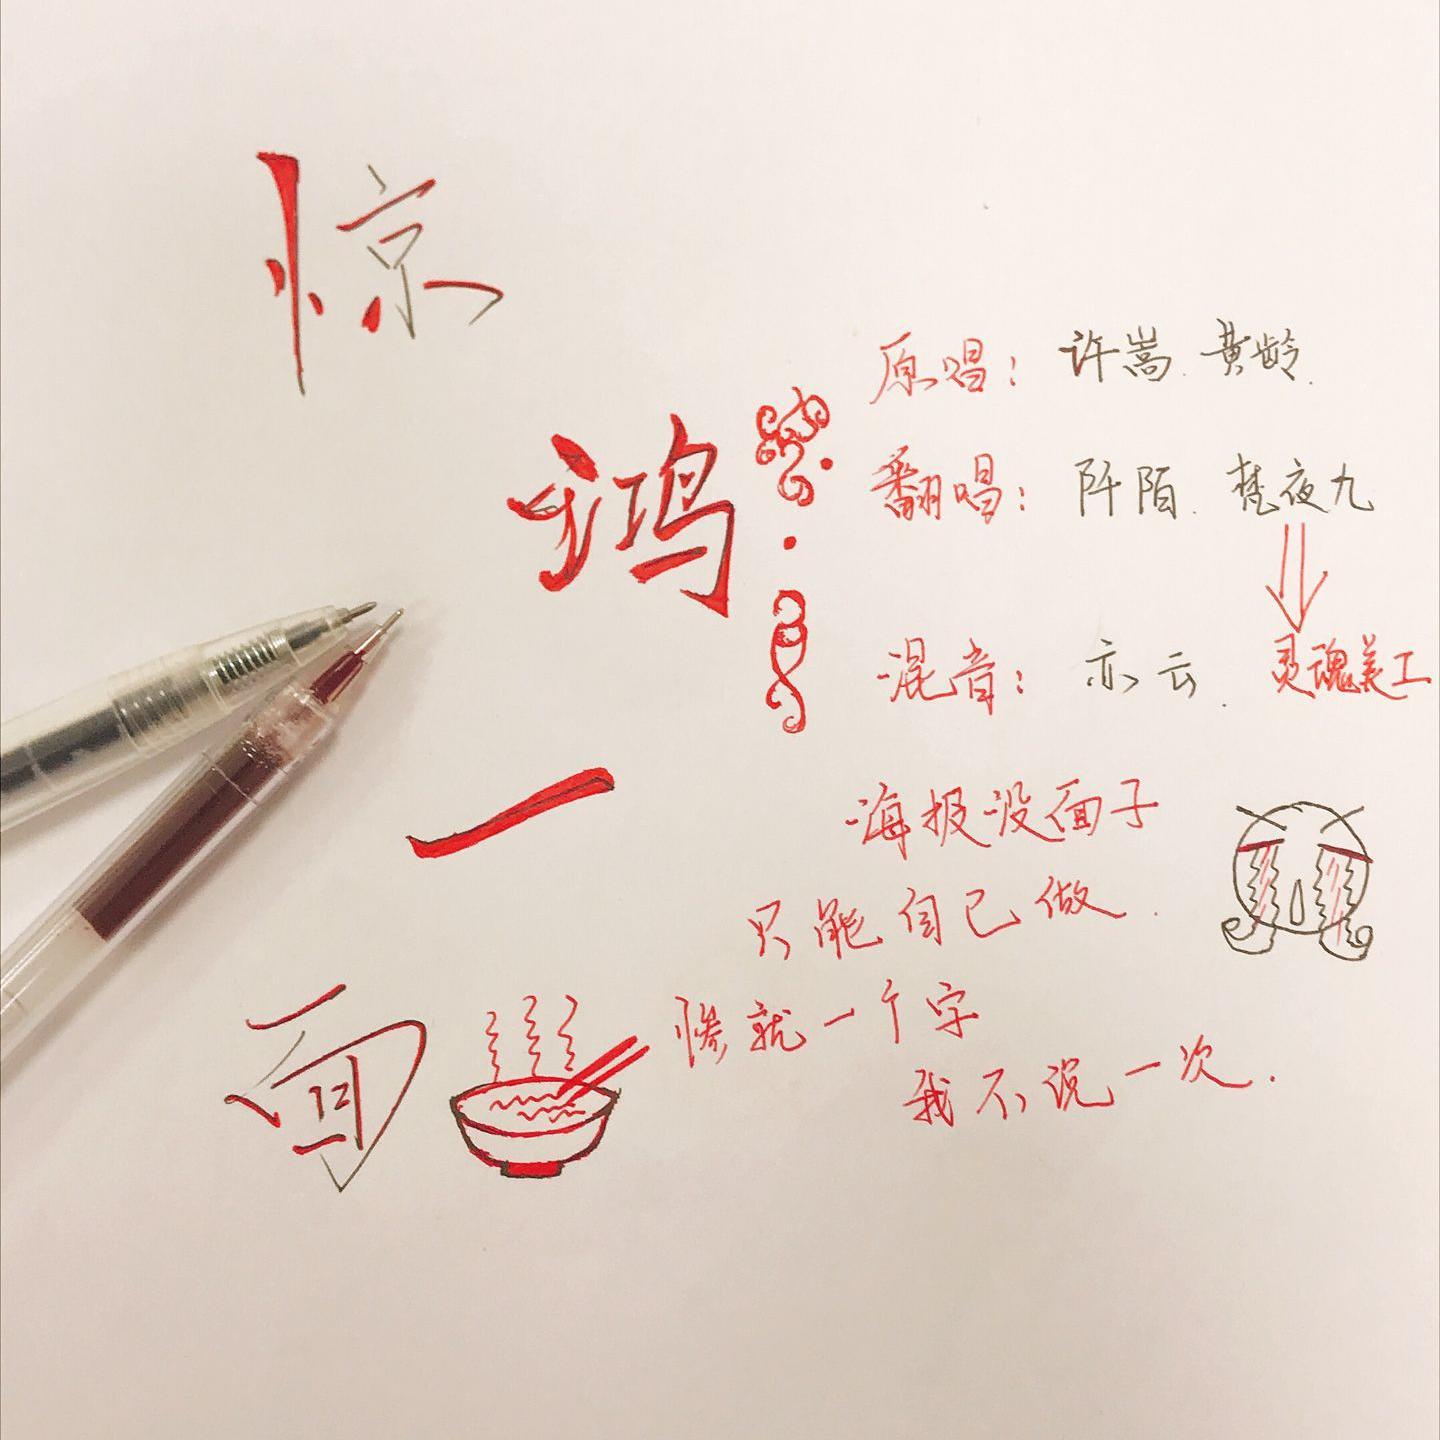 惊
鸿
一
面
原唱：许嵩. 黄龄.
翻唱：阡陌. 梵夜九
混音：亦云.
灵魂美工
海报没面子
只能自己做.
惨就一个字
我不说一次.